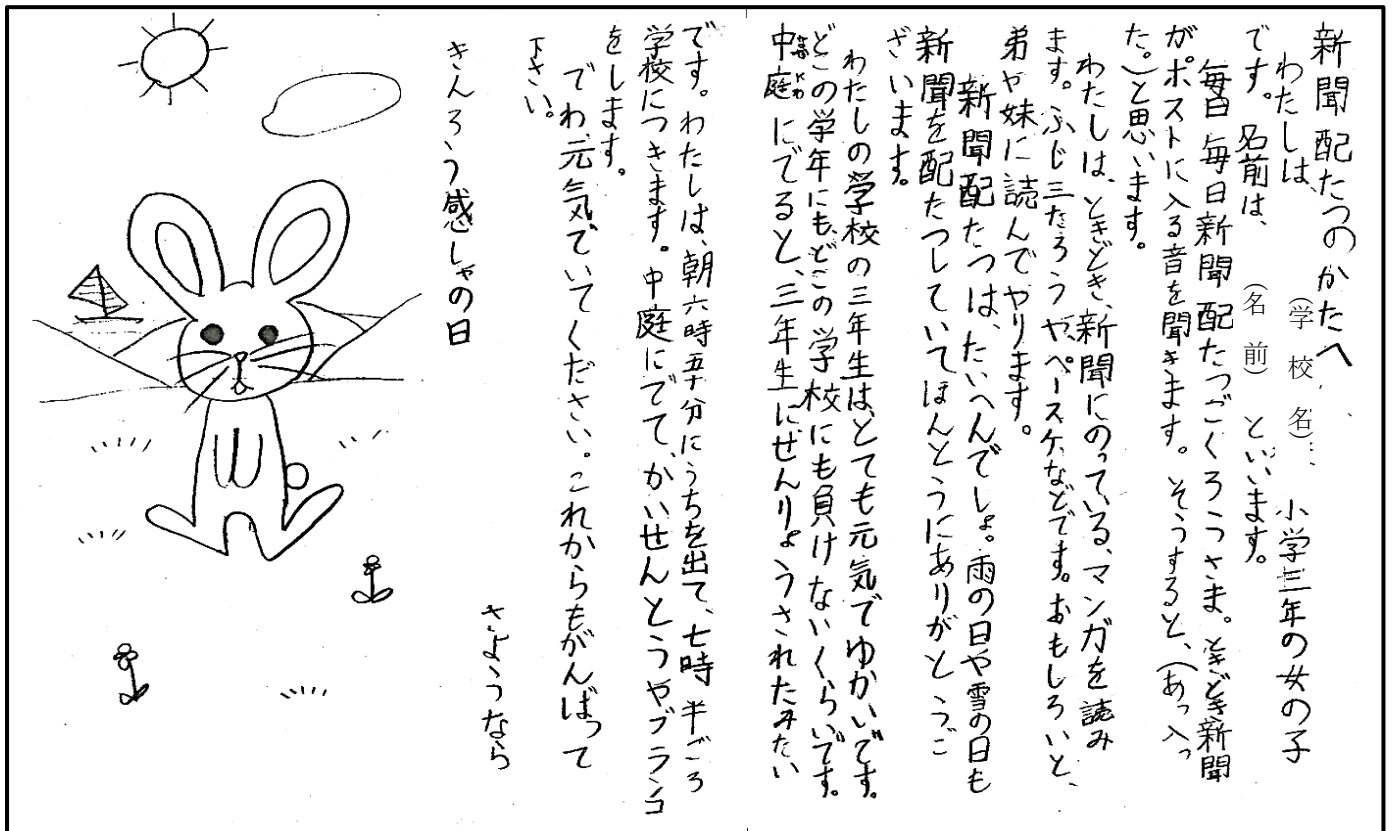 新聞配たつのかたへ
わたしは、(学校名)、小学三年の女の子
です。名前は、(名前)といいます。
毎日毎日新聞配たつごくろうさま。ときどき新聞
がポストに入る音を聞きます。そうすると、(あっ入っ
た。)と思います。
わたしは、ときどき、新聞にのっている、マンガを読み
ます。ふじ三たろうや、ペースケなどです。おもしろいと、
弟や妹に読んでやります。
新聞配たつは、たいへんでしょ。雨の日や雪の日も
新聞を配たつしていてほんとうにありがとうご
ざいます。
わたしの学校の三年生は、とても元気でゆかいです。
どこの学年にも、どこの学校にも負けないくらいです。
中庭にでると、三年生にせんりょうされたみたい
なかにわ
です。わたしは、朝六時五十分にうちを出て、七時半ごろ
学校につきます。中庭にでて、かいせんとうやブランコ
をします。
でわ、元気でいてください。これからもがんばって
下さい。
さようなら
きんろう感しゃの日